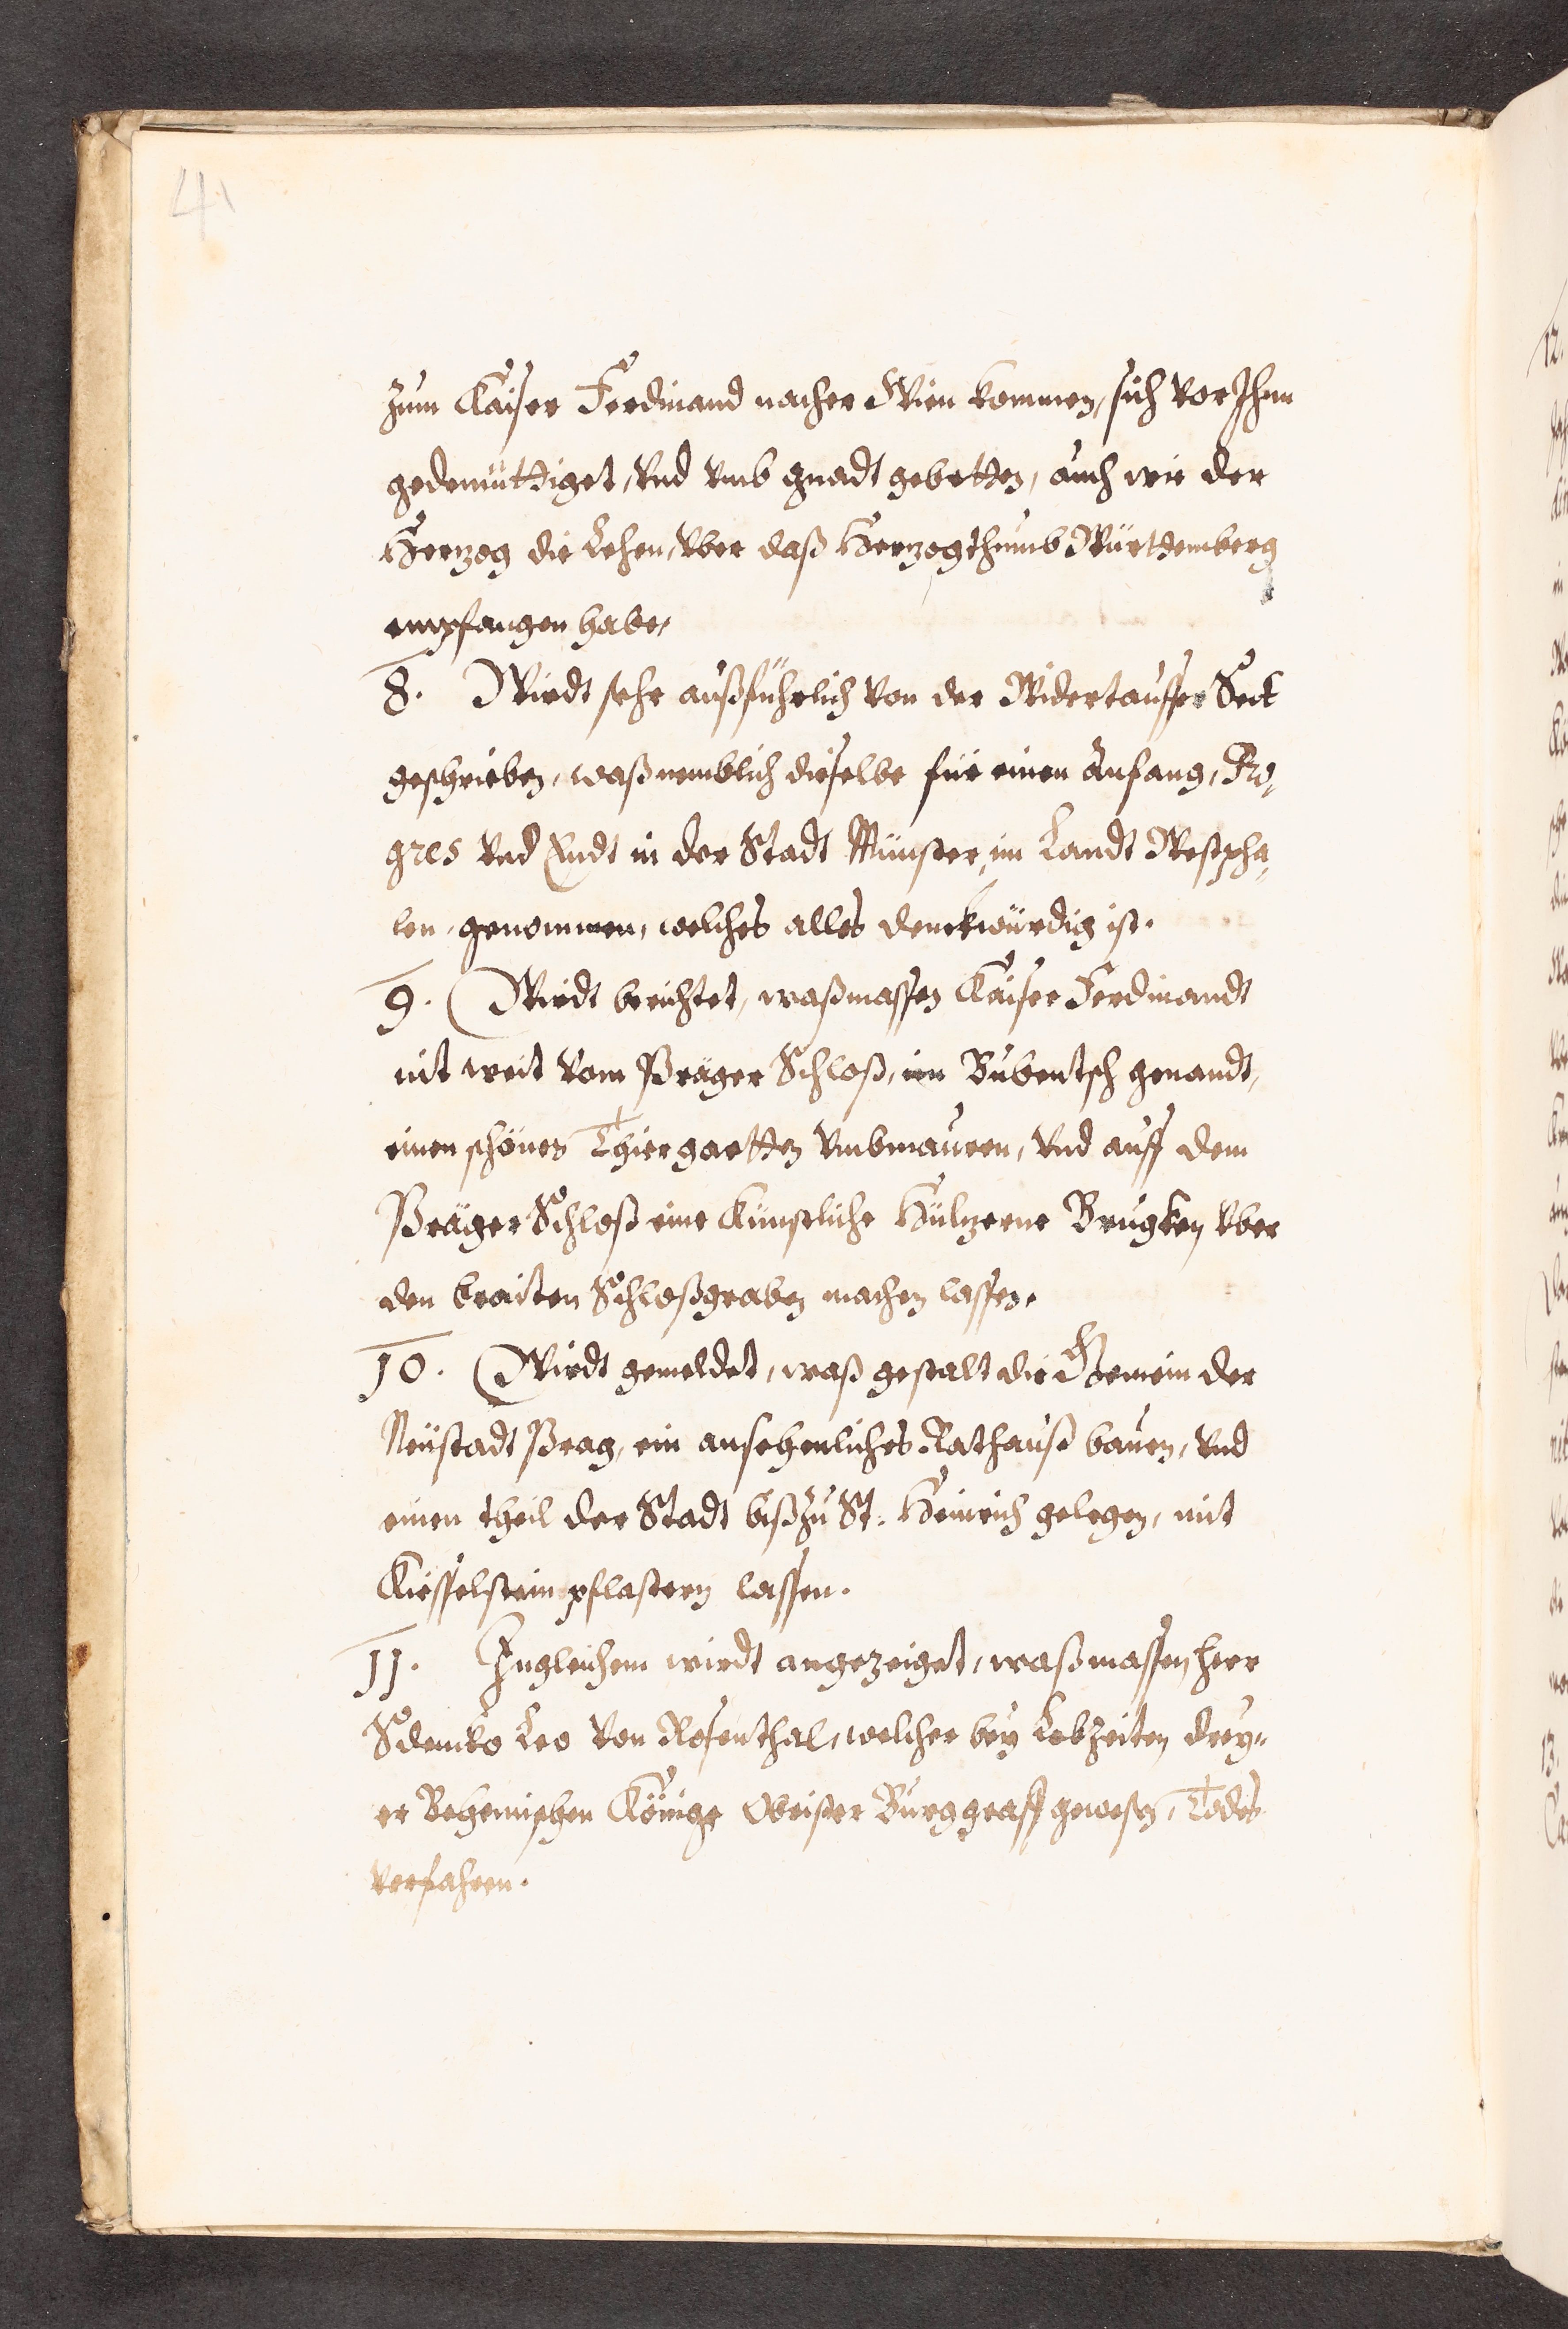 4
zum Kaiser Ferdinand nacher Wien kommen, sich vor Ihm
gedemüttiget, vnd vmb gnadt gebetten, auch wie der
Hertzog die Lehen, vber daß Hertzogthumb Württemberg
empfangen habe,
8. Wirdt sehr außführlich von der Widertauffer Sect
geschrieben, waß nemblich dieselbe für einen Anfang, Pro,
gres vnd Endt in der Stadt Münster, im Landt Westpha,
len, genommen, welches alles denckwürdig ist.
9. Wirdt berichtet, waßmassen Kaiser Ferdinandt
nit weit vom Präger Schloß, im Bubentsch genandt,
einen schönen Thiergartten vmbmauren, vnd auff dem
Präger Schloß eine Künstliche Hültzerne Brugken vber
den braiten Schloßgraben machen lassen.
10. Wirdt gemeldet, waß gestalt die Gemein der
Neüstadt Prag, ein ansehenliches Rathauß bauen, vnd
einen theil der Stadt biß zu St. Heinrich gelegen, mit
Kiesselstein pflastern lassen.
11. Ingleichem wirdt angezeiget, waßmassen Herr
Sdenko Leo von Rosenthal, welcher bey Lebzeiten drey„
er Behemischen Könige Obrister Burggraff gewesen, Todes
verfahren.